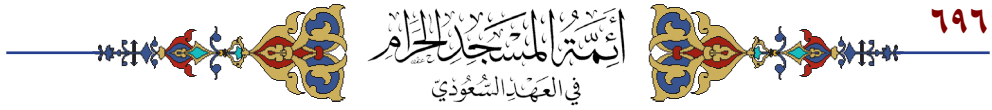 ٦٩٦
أَئِمَّةُ المَسْجِدِ الحَرَامِ
فِي العَهْدِ السُّعُودِيّ